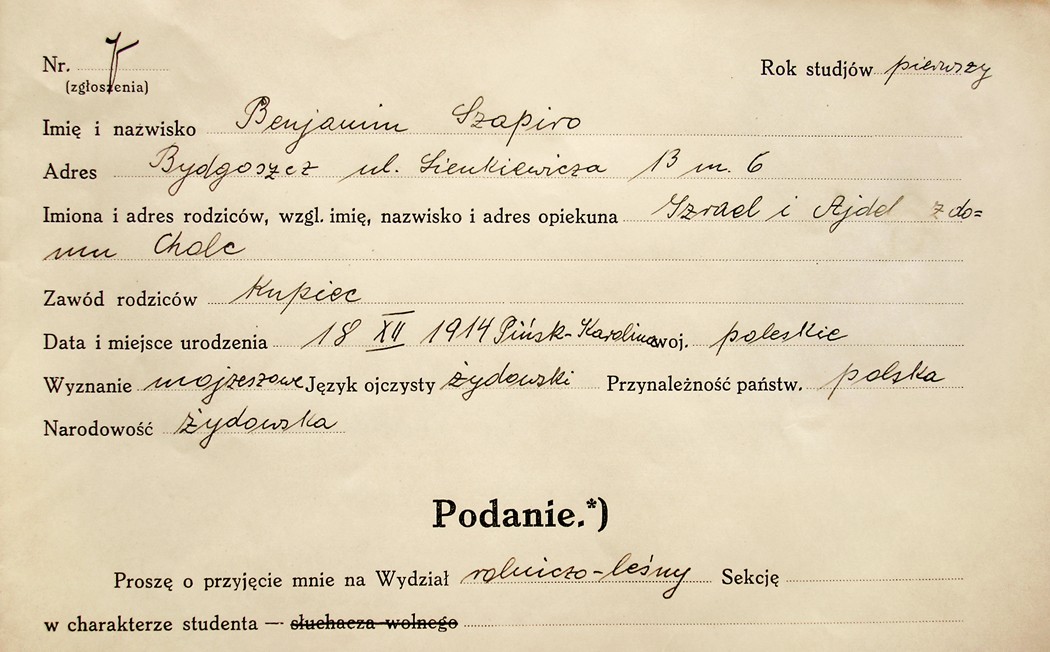 Nr.
(zgłoszenia)
Rok studjów pierwszy
Imię i nazwisko Benjamin Szapiro
Adres Bydgoszcz ul. Sienkiewicza 13 m. 6
Imiona i adres rodziców, wzgl. imię, nazwisko i adres opiekuna Izrael i Ajdel z do=
mu Cholc
Zawód rodziców Kupiec
Data i miejsce urodzenia 18 XII 1914 Pińsk-Karolin woj. poleskie
Wyznanie mojżeszowe Język ojczysty żydowski Przynależność państw. polska
Narodowość żydowska
Podanie.*)
Proszę o przyjęcie mnie na Wydział rolniczo-leśny Sekcję
w charakterze studenta — słuchacza wolnego